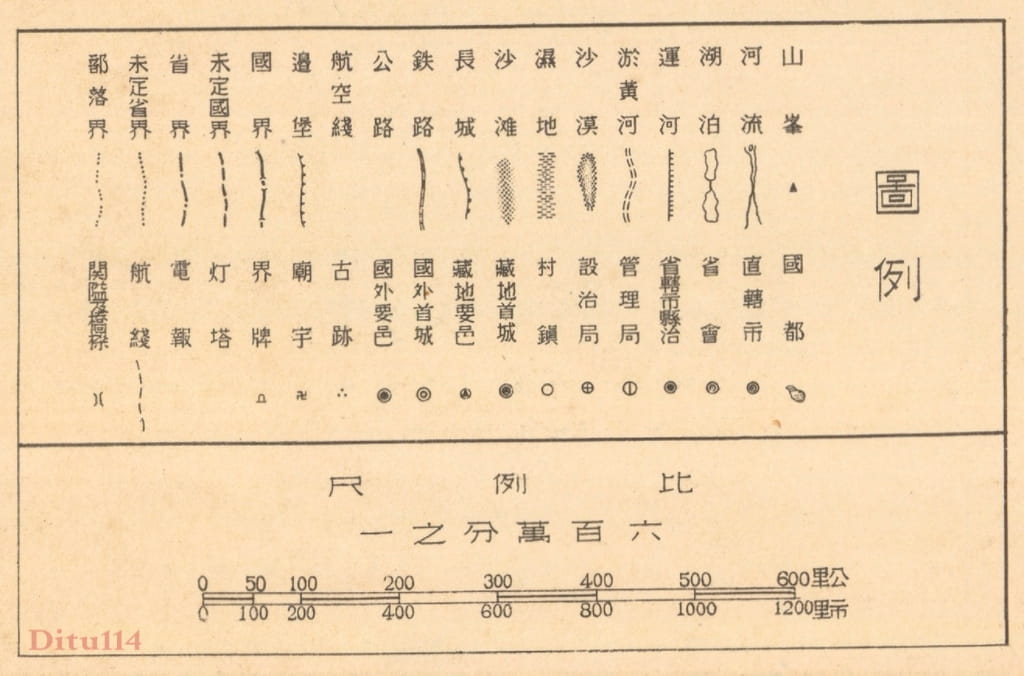 圖例
山峯
河流
湖泊
運河
淤黃河
沙漠
濕地
沙滩
長城
鉄路
公路
航空綫
邊堡
國界
未定國界
省界
未定省界
部落界
國都
直轄市
省會
省轄市縣治
管理局
設治局
村鎭
藏地首城
藏地要邑
國外首城
國外要邑
古跡
廟宇
界牌
灯塔
電報
航綫
関隘及橋樑
比例尺
六百萬分之一
0 50 100 200 300 400 500 600公里
0 100 200 400 600 800 1000 1200市里
Ditu114